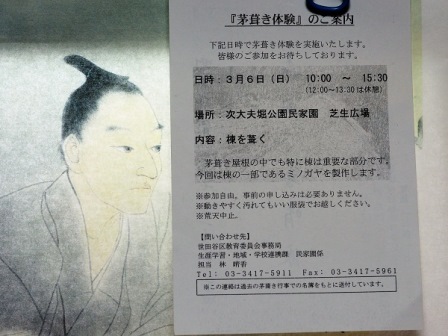 『茅葺き体験』のご案内
下記日時で茅葺き体験を実施いたします。
皆様のご参加をお待ちしております。
日時：３月６日（日） 10:00 ～ 15:30
(12:00～13:30は休憩)
場所：次大夫堀公園民家園 芝生広場
内容：棟を葺く
茅葺き屋根の中でも特に棟は重要な部分です。
今回は棟の一部であるミノガヤを製作します。
※参加自由。事前の申し込みは必要ありません。
※動きやすく汚れてもいい服装でお越しください。
※荒天中止。
【問い合わせ先】
世田谷区教育委員会事務局
生涯学習・地域・学校連携課 民家園係
担当 林
Tel: 03-3417-5911 Fax: 03-3417-5961
※この連絡は過去の茅葺き行事での名簿をもとに送付しています。